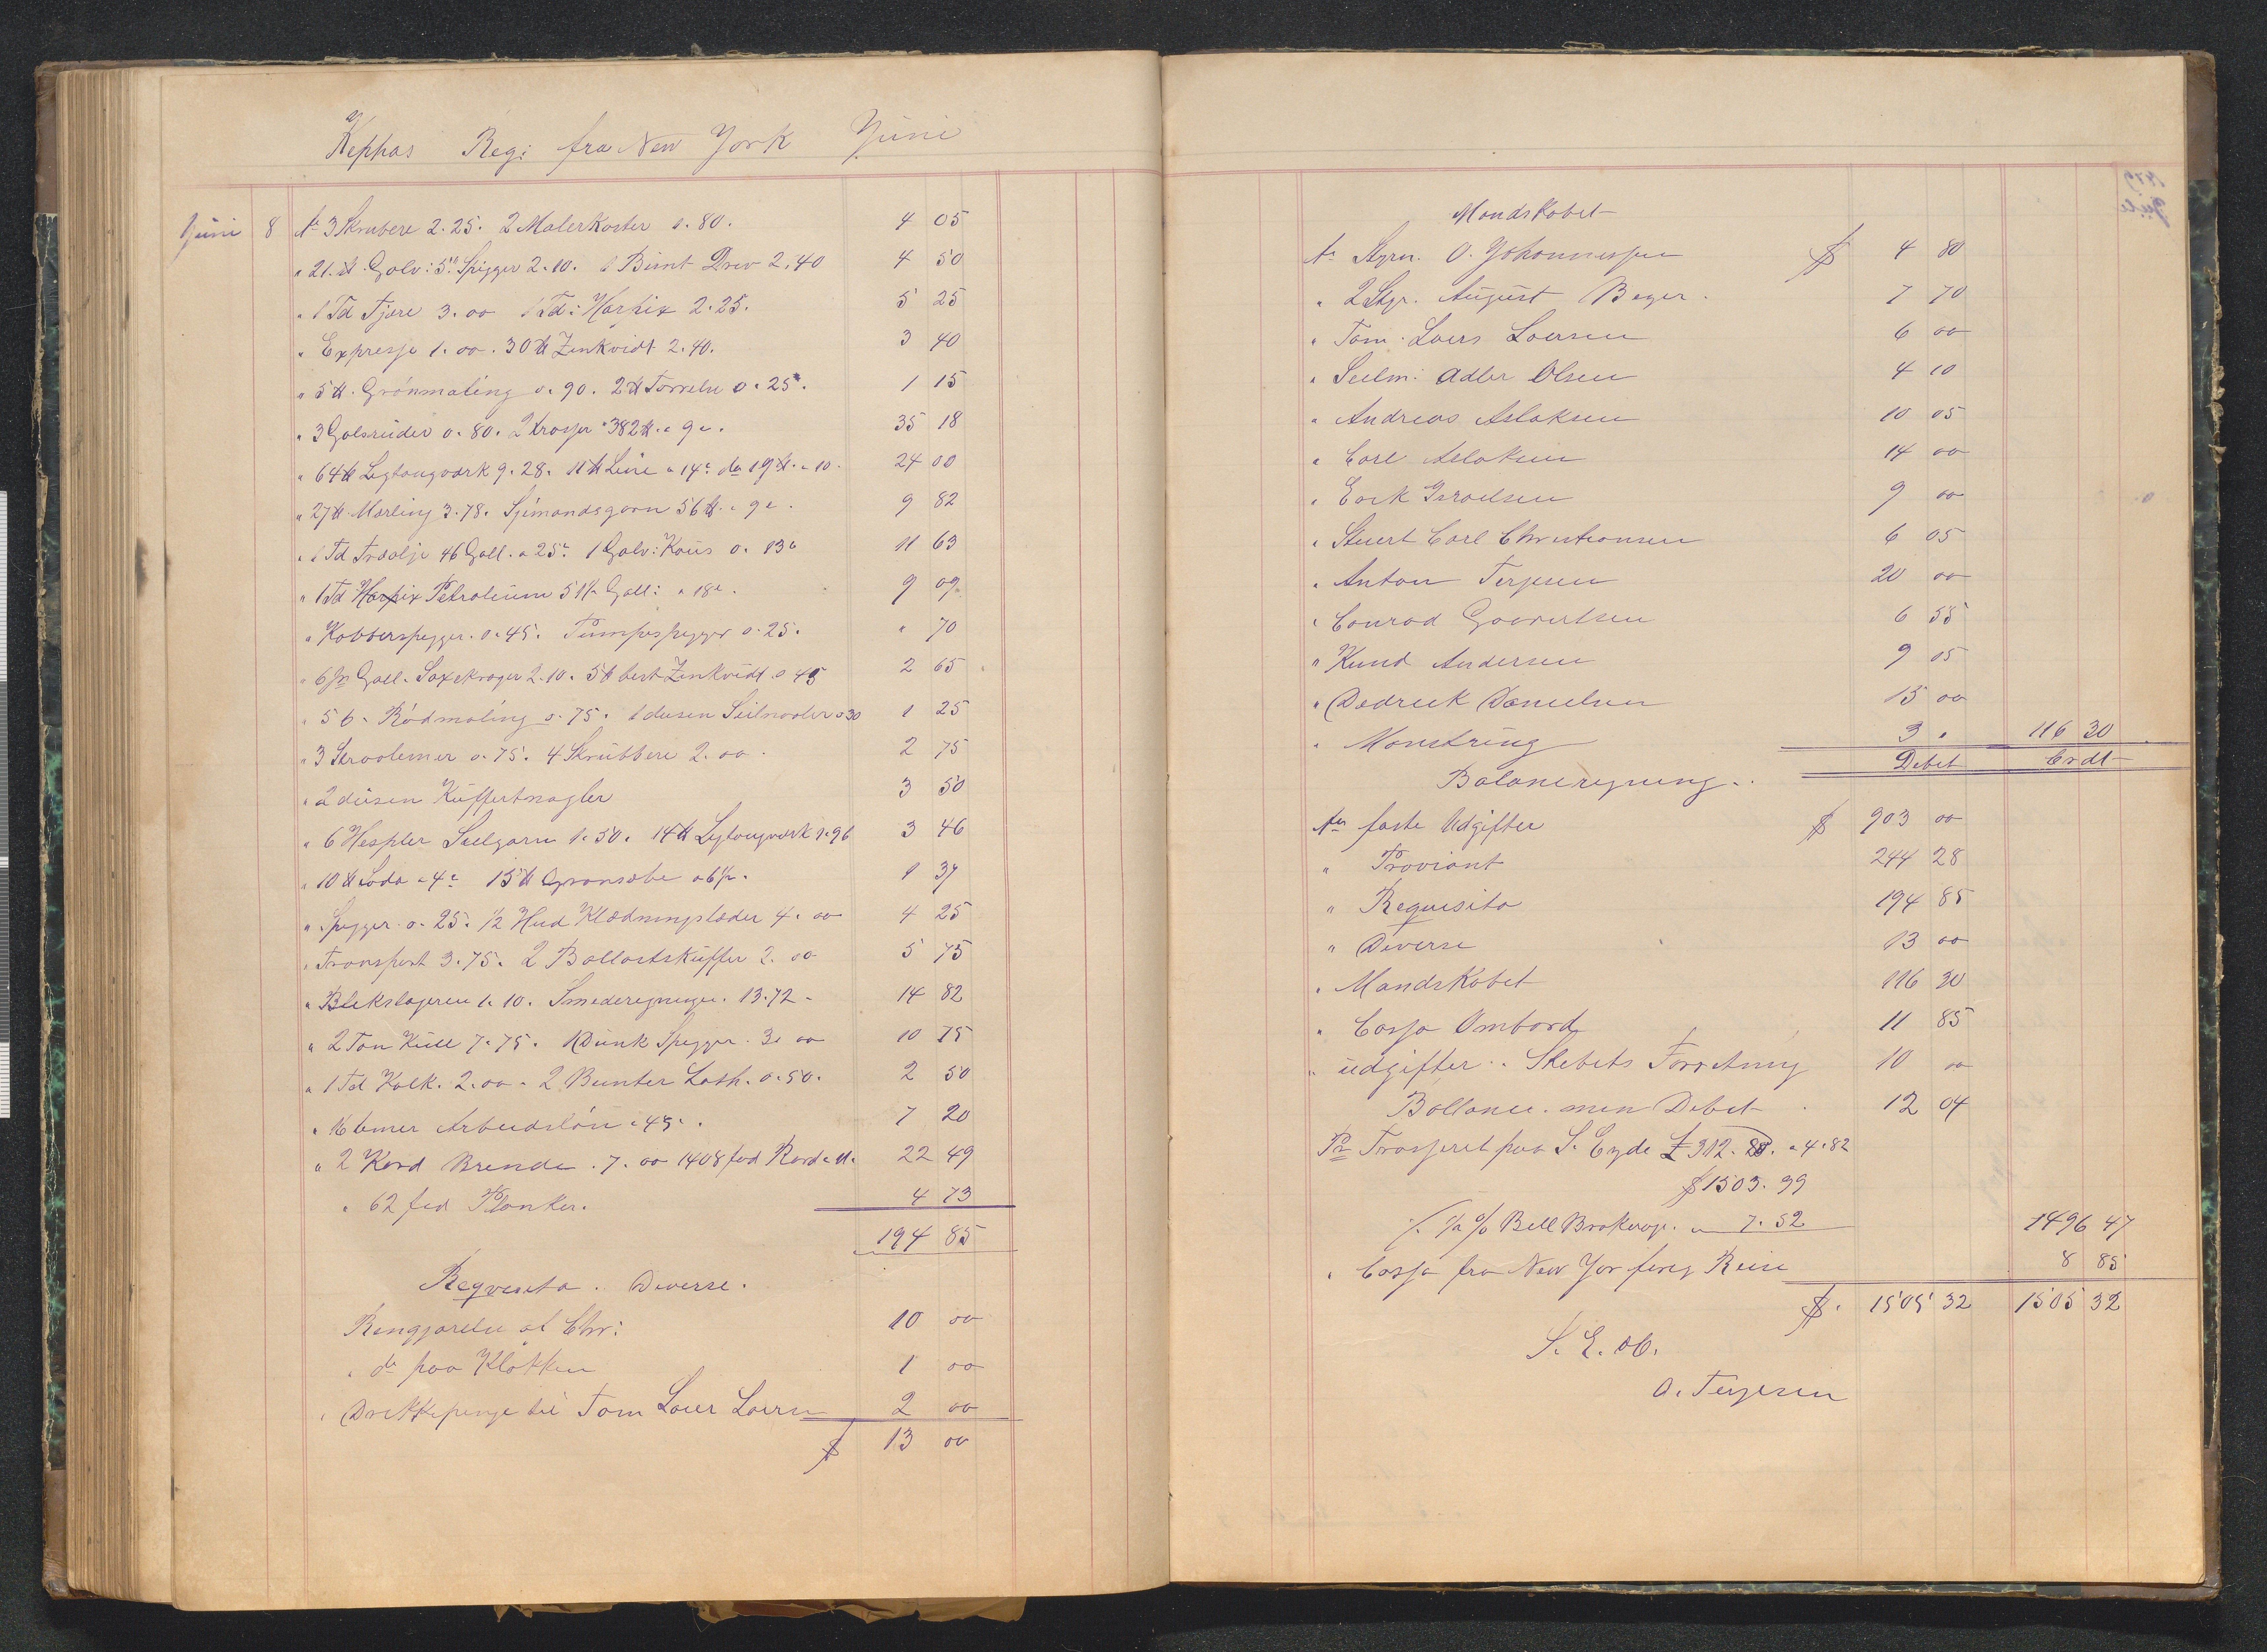 Kephas Reg: fra New York Juni
Juni 8 An 3 Skrubere 2.25. 2 Malerkoster 1.80. 4 05
" 21 ℔ Galv: 5" Spigger 2.10. 1 Bunt Drev 2.40 4 50
" 1 Td Tjære 3.00 1 Td: Harpix 2.25. 5 25
" Expresse 1.00. 30 ℔ Zinkvidt 2.40. 3 40
" 5 ℔. Grönmaling 0.90. 2 ℔ Törrelse 0.25. 1 15
" 3 Galsruder 0.80. 2 Trosser 382 ℔ a 9 c. 35 18
" 64 ℔ Ligtougværk 9.28. 11 ℔ Line a 14 c do 19 ℔ a 10. 24 00
" 27 ℔ Merling 3.78. Sjömandsgarn 56 ℔ a 9 c. 9 82
" 1 Td Træolje 46 Gall. a 25 c. 1 Galv: Kous 0.13 c 11 63
" 1 Td Petroleum 51 ½ Gall: a 18 c. 9 09
" Kobberspigger. 0.45. Pumpespigger 0.25. " 70
" 6 Gall. 2.10. 5 ℔ best Zinkvidt 0 45 2 65
" 5 ℔. Rödmaling 0.75. 1 dusen Seilnaaler 0 30 1 25
" 3 0.75. 4 Skrubbere 2.00. 2 75
" 2 dusen Kuffertnagler 3 50
" 6 Hespler Seilgarn 1.50. 14 ℔ Ligtougværk 1.96 3 46
" 10 ℔ Soda a 4 c 15 ℔ Grønsæbe a 6 ½. 1 37
" Spigger 0.25. ½ Hud Klædningslæder 4.00 4 25
" Transport 3.75. 2 Ballastskuffer 2.00 5 75
" Blikslageren 1.10. Smederegninger. 13.72. 14 82
" 2 Ton Kull 7.75. 1 Dunk Spigger. 3.00 10 75
" 1 Td Kalk. 2.00. 2 Bunter Lath. 0.50. 2 50
" 16 Timer Arbeidslön a 45. 7 20
" 2 Kord Brende. 7.00 1408 fod 22 49
" 62 fod Planker. 4 73
194 85
Reqvisita. Diverse.
Rengjörelse af Chr: 10 00
" do paa Klokken 1 00
" Drikkepenge til Tom Lars Larsen 2 00
$ 13 00
Mandskabet
An Styrm. O. Johannessen $ 4 80
" 2 Styr. August Beyer. 7 70
" Tom. Lars Larsen 6 00
" Seilm: Adler Olsen 4 10
" Andreas Aslaksen 10 05
" Carl Aslaksen 14 00
" Israelsen 9 00
" Stuert Carl Christiansen 6 05
" Anton Terjesen 20 00
" Conrad 6 55
" Knud Andersen 9 05
" Danielsen 15 00
" Mönstring 3 " 116 30
Debet Credt
Balanceregning.
An faste Udgifter $ 903 00
" Proviant 244 28
" Requisita 194 85
" Diverse 13 00
" Mandskabet 116 30
" Cassa Ombord 11 85
" udgifter Skibets Forretning 10 00
Ballance. men Debet. 12 04
Pr Trasseret paa S. Eyde £ 312. a 4.82
$ 1503.99
½ % Bill Brokerage. " 7.52 1496 47
" Cassa fra New Yor forrig Reise 8 85
$. 1505 32 1505 32
S. E. &c.
O. Terjesen